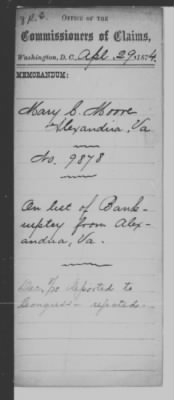 OFFICE OF THE
Commissioners of Claims,
Washington, D. C. Apl. 29, 1874.
MEMORANDUM:
Mary C. Moore
Alexandria, Va
No. 9878
On list of Bank-
ruptcy from Alex-
andria, Va.
Dec. Reported to
Congress - rejected -